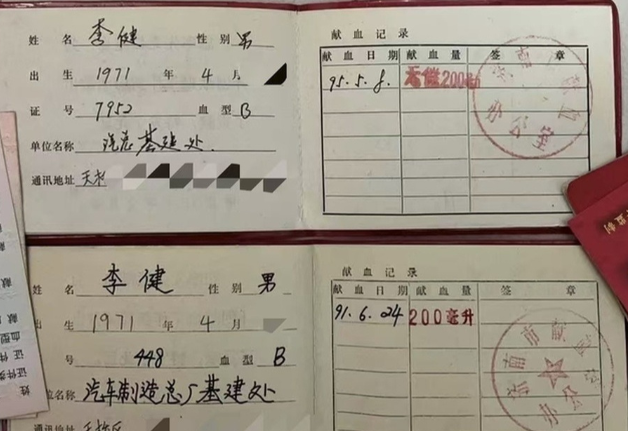 姓 名 李健 性别 男
出 生 1971 年 4 月
证 号 7952 血型 B
单位名称 汽总基建处
通讯地址 天桥
献 血 记 录
献血日期 献血量 签 章
95.5.8. 无偿200
济南市献血办公室
姓 名 李健 性别 男
出 生 1971 年 4 月
号 448 血型 B
位名称 汽车制造总厂基建处
通讯地址 天桥区
献 血 记 录
献血日期 献血量 签 章
91.6.24 200毫升
济南市献血办公室